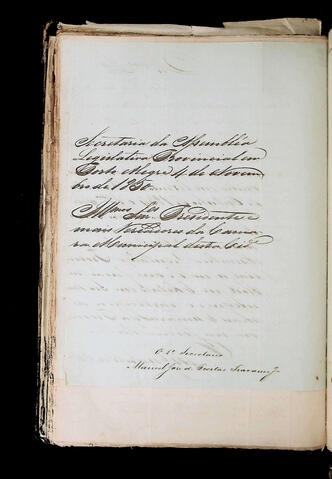 Secretaria da Assemblea
Legislativa Provincial em
Porto Alegre 4 de Novem
bro de 1850
Illmos Snrs. Presidente e
mais Vereadores da Cama
ra Municipal desta Cide
O 1º Secretario
Manoel José de Freitas Travassos Jr